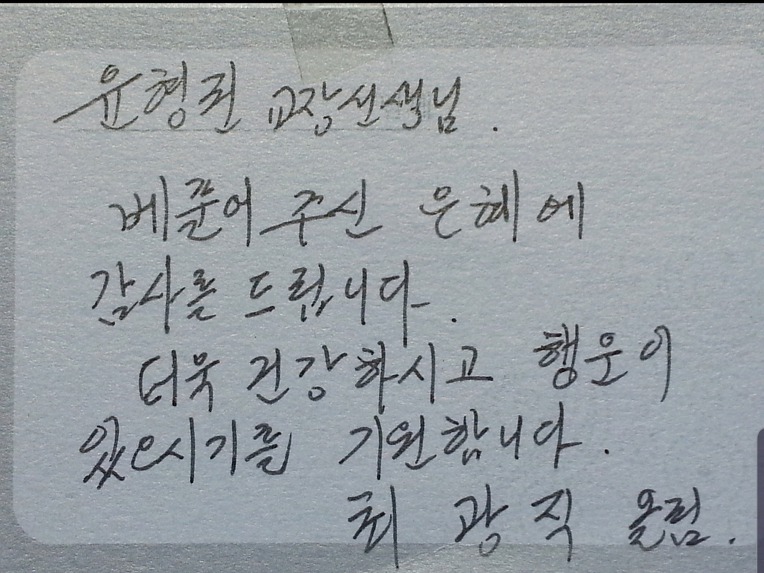 윤형권 교장선생님.
베풀어 주신 은혜에
감사를 드립니다.
더욱 건강하시고 행운이
있으시기를 기원합니다.
최광직 올림.